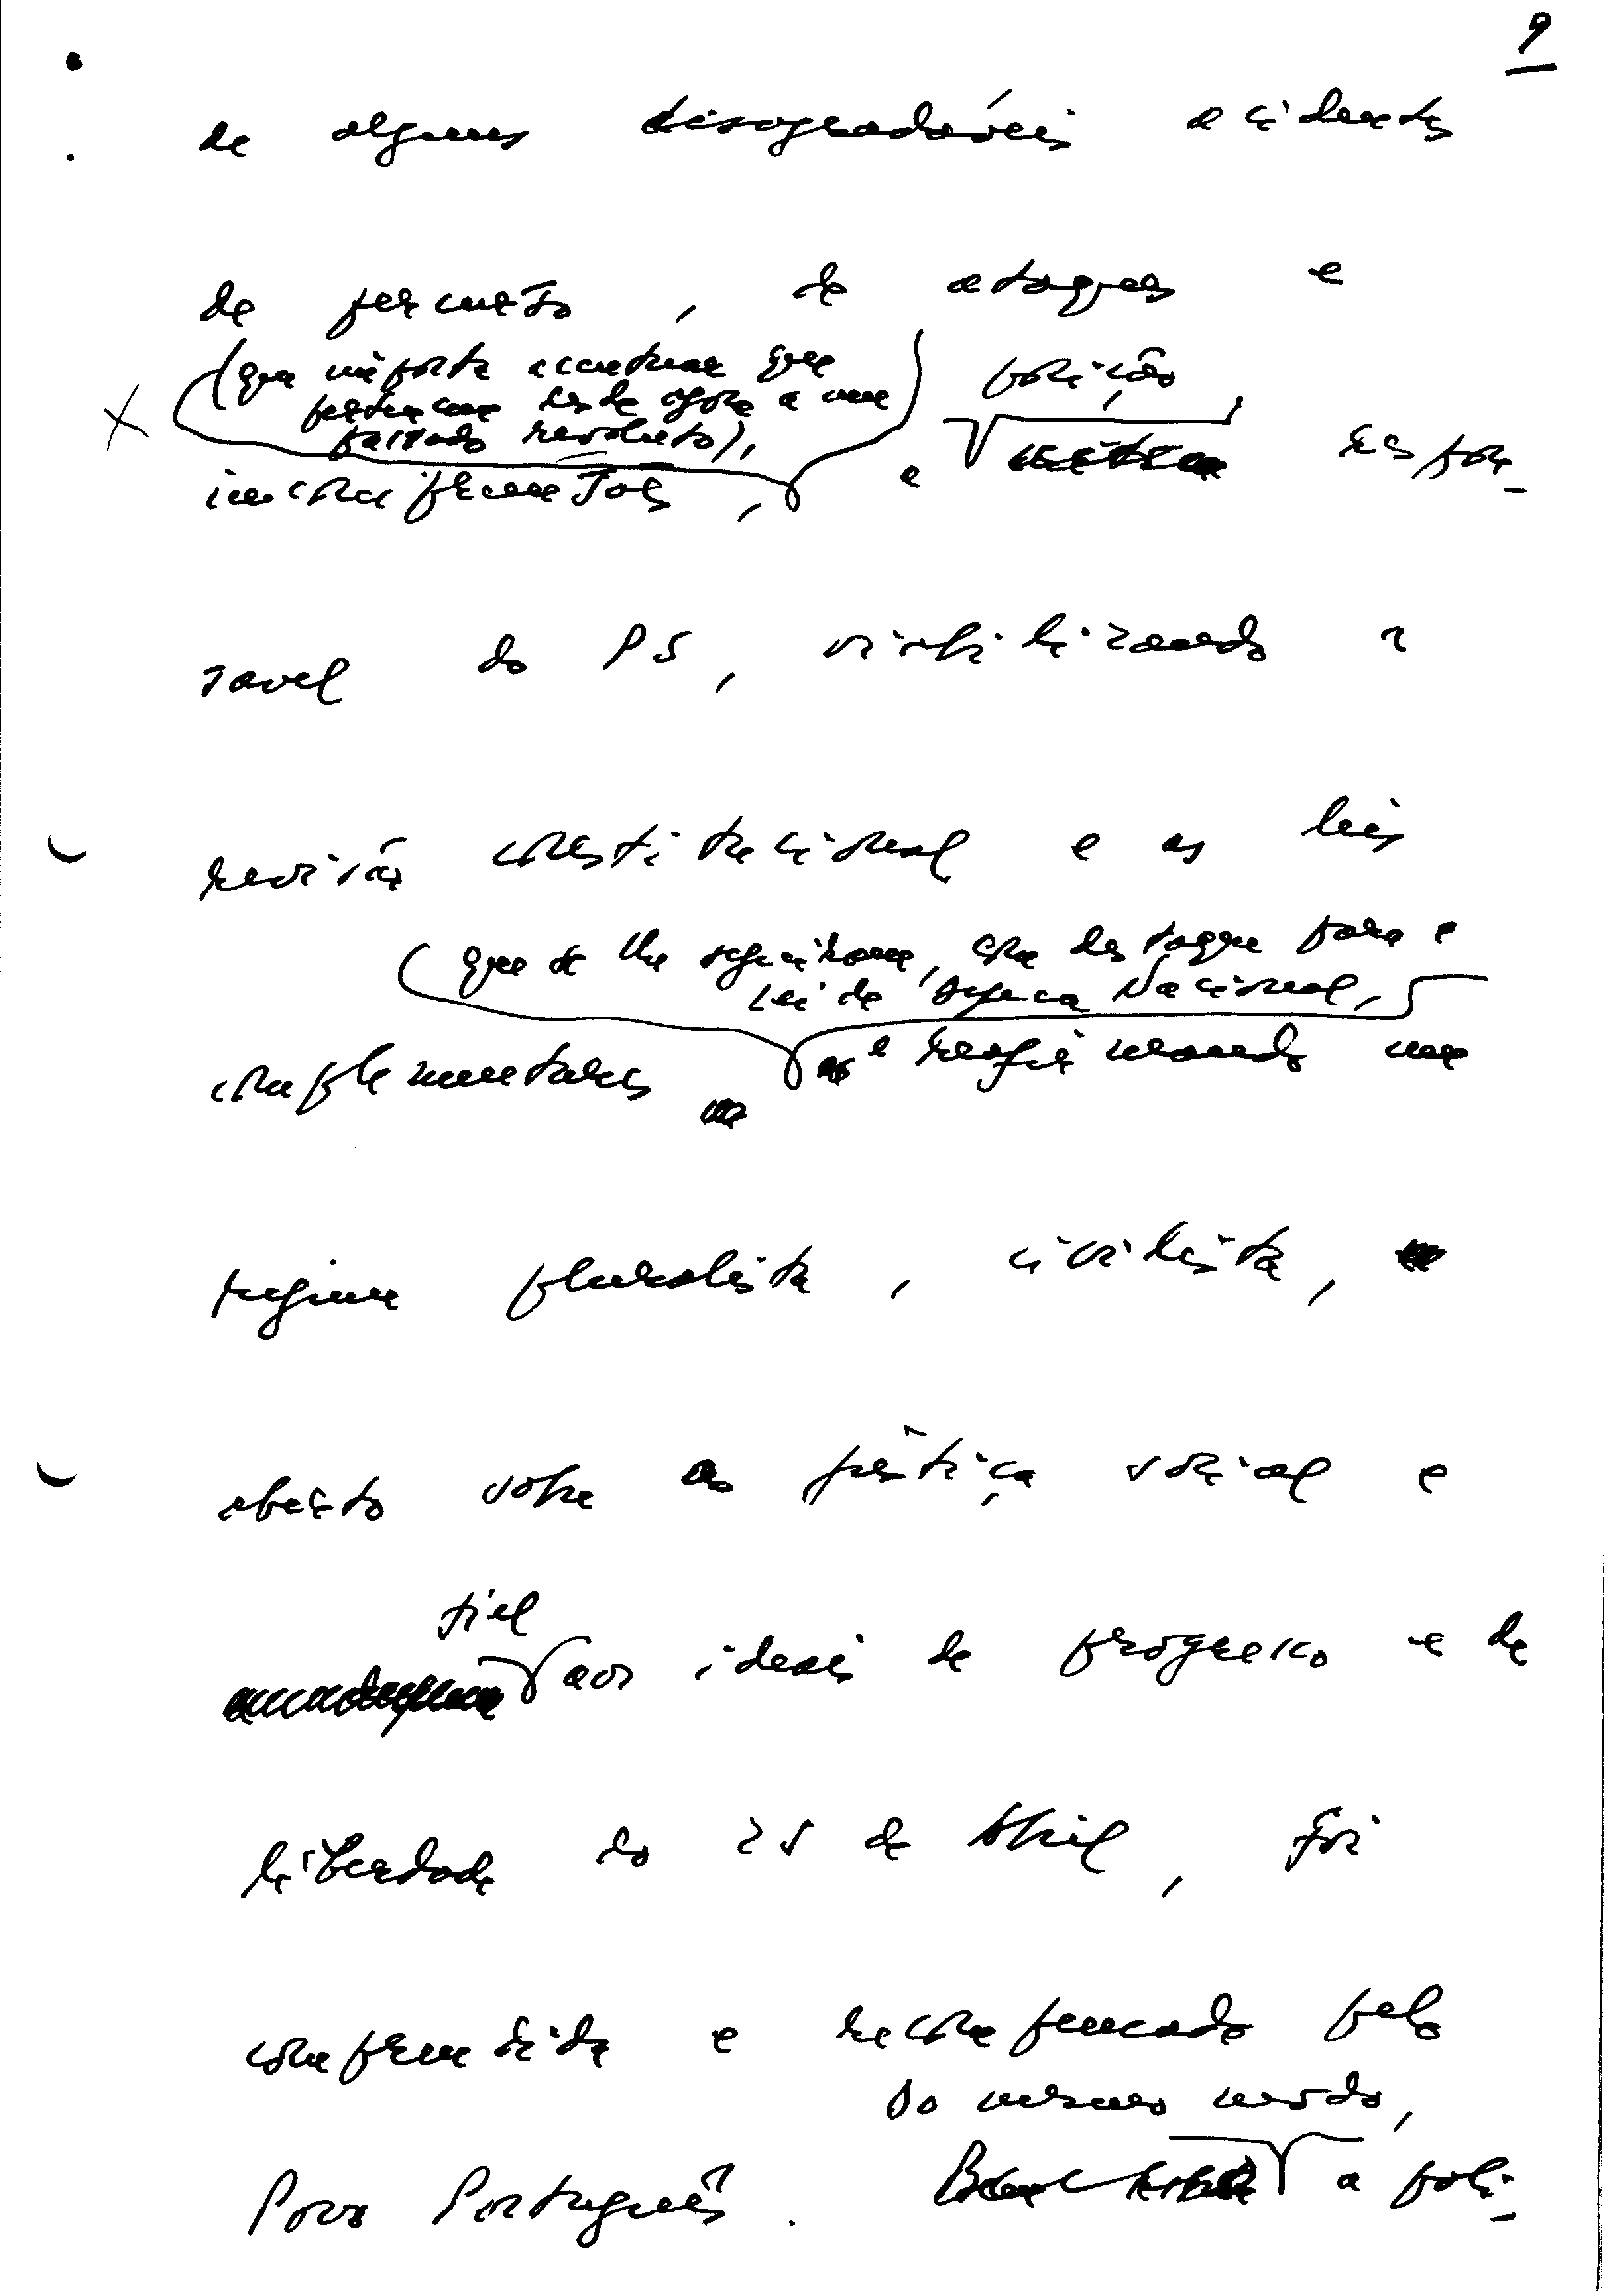 9
de alguns desagradáveis acidentes
de percurso, de ataques e
(que importa acentuar que
pertencem desde agora a um
passado revoluto),
posição
incompreensões, a respon-
sável do PS, viabilizando a
revisão constitucional e as leis
que se lhe seguiram, com destaque para a
Lei de Defesa Nacional,
complementares e reafirmando um
regime pluralista, civilista,
aberto sobre a justiça social e
fiel
aos ideais de progresso e de
liberdade do 25 de Abril, foi
compreendida e recompensada pelo
Do mesmo modo,
Povo Português. a poli-